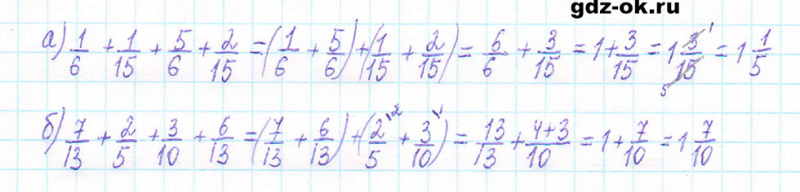 gdz-ok.ru
а) 1/6 + 1/15 + 5/6 + 2/15 = (1/6 + 5/6) + (1/15 + 2/15) = 6/6 + 3/15 = 1 + 3/15 = 1 3/15 = 1 1/5
б) 7/13 + 2/5 + 3/10 + 6/13 = (7/13 + 6/13) + (2/5 \2 + 3/10 \1) = 13/13 + (4+3)/10 = 1 + 7/10 = 1 7/10